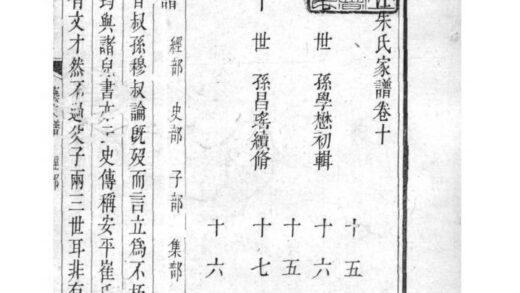 朱氏家譜卷十
十五
世 孫學懋初輯 十六
十五
世 孫昌瑤續脩 十七
十六
譜 經部 史部 子部 集部
叔孫穆叔論旣歿而言立爲不朽
筠與諸兒書亦云史傳稱安平崔氏
有文才然不過父子兩三世耳非有
藝文譜 經部